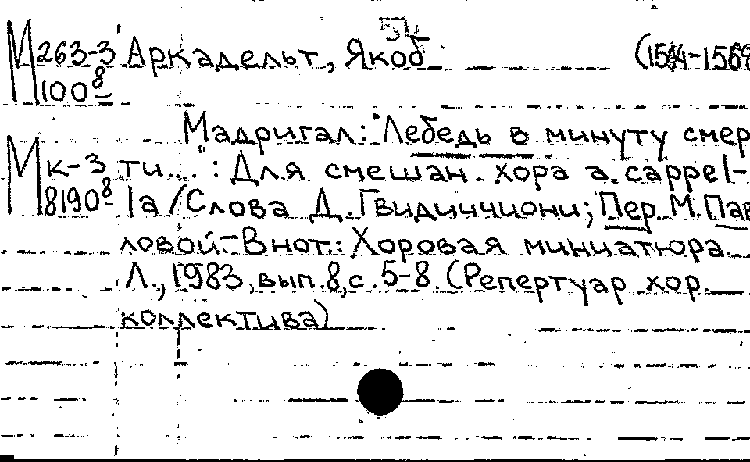 51
М 263-3 Аркадельт, Якоб (1514-1569
100⁸
Мадригал: "Лебедь в минуту смер
М к-3 ти...": Для смешан. хора a cappel-
8190⁸ la / Слова Д. Гвидиччиони; Пер. М. Пав
ловой.-В нот.: Хоровая миниатюра.
Л., 1983, вып. 8, с. 5-8. (Репертуар хор.
коллектива)